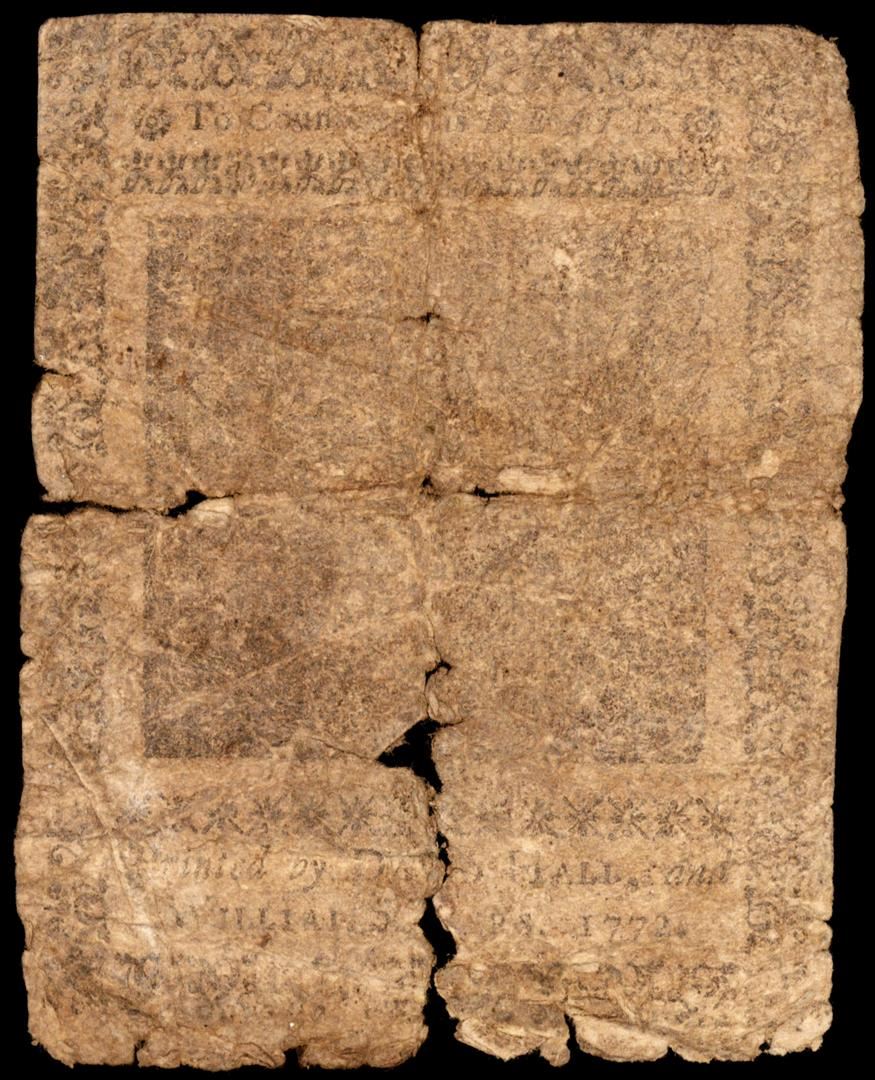 To Coun is DEATH.
Printed by HALL, and
WILLIAM S RS. 1772.